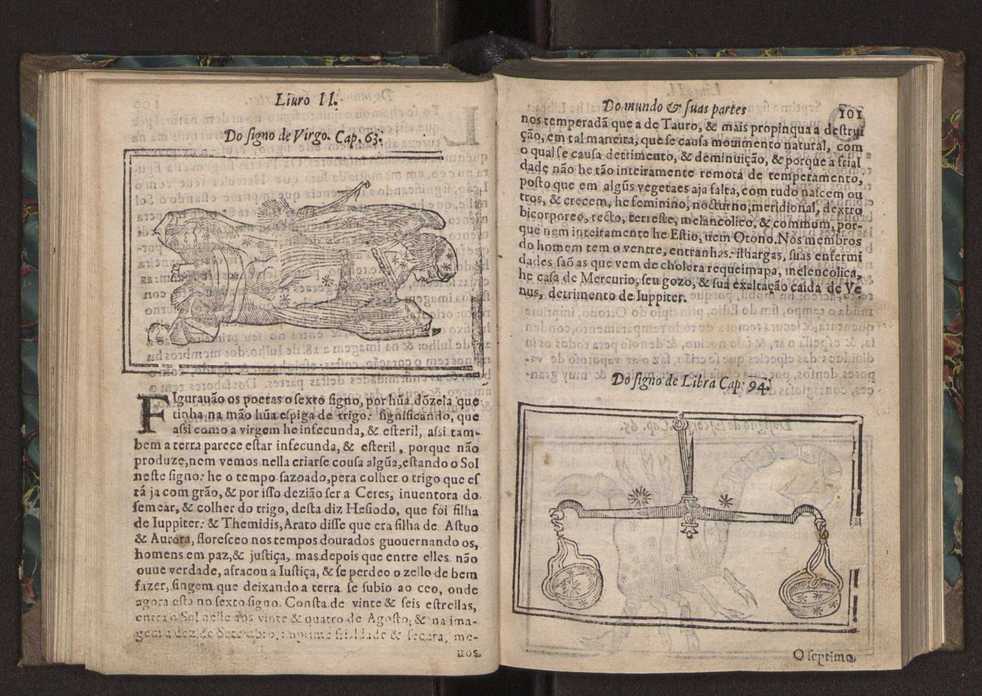 Liuro II.
Do signo de Virgo. Cap. 63.
FIgurauão os poetas o sexto signo, por hũa dõzela que
tinha na mão hũa espiga de trigo: significando, que
assi como a virgem he infecunda, & esteril, assi tam-
bem a terra parece estar infecunda, & esteril, porque não
produze, nem vemos nella criarse cousa algũa, estando o Sol
neste signo: he o tempo sazoado, pera colher o trigo que es
tá ja com grão, & por isso dezião ser a Ceres, inuentora do
semear, & colher do trigo, desta diz Hesiodo, que foi filha
de Iuppiter: & Themidis, Arato disse que era filha de Astuo
& Aurora, floresceo nos tempos dourados guouernando os,
homens em paz, & justiça, mas depois que entre elles não
ouue verdade, afracou a Iustiça, & se perdeo o zello de bem
fazer, fingem que deixando a terra se subio ao ceo, onde
agora esta no sexto signo. Consta de vinte & seis estrellas,
entra o Sol nelle aos vinte & quatro de Agosto, & na ima-
gem a dez de Setembro, & secura, me-
nos.
Do mundo & suas partes
101
nos temperada que a de Tauro, & mais propinqua a destrui
ção, em tal maneira, que se causa mouimento natural, com
o qual se causa detrimento, & deminuição, & porque a frial
dade não he tão inteiramente remota de temperamento,
posto que em algũs vegetaes aja falta, com tudo nascem ou
tros, & crecem, he feminino, nocturno, meridional, dextro
bicorporeo, recto, terrestre, melancolico, & commum, por-
que nem inteiramente he Estio, nem Otono. Nos membros
do homem tem o ventre, entranhas. ilhargas, suas enfermi
dades são as que vem de cholera requeimapa, melencolica,
he casa de Mercurio, seu gozo, & sua exaltação caida de Ve
nus, detrimento de Iuppiter.
Do signo de Libra Cap. 94.
O septimo